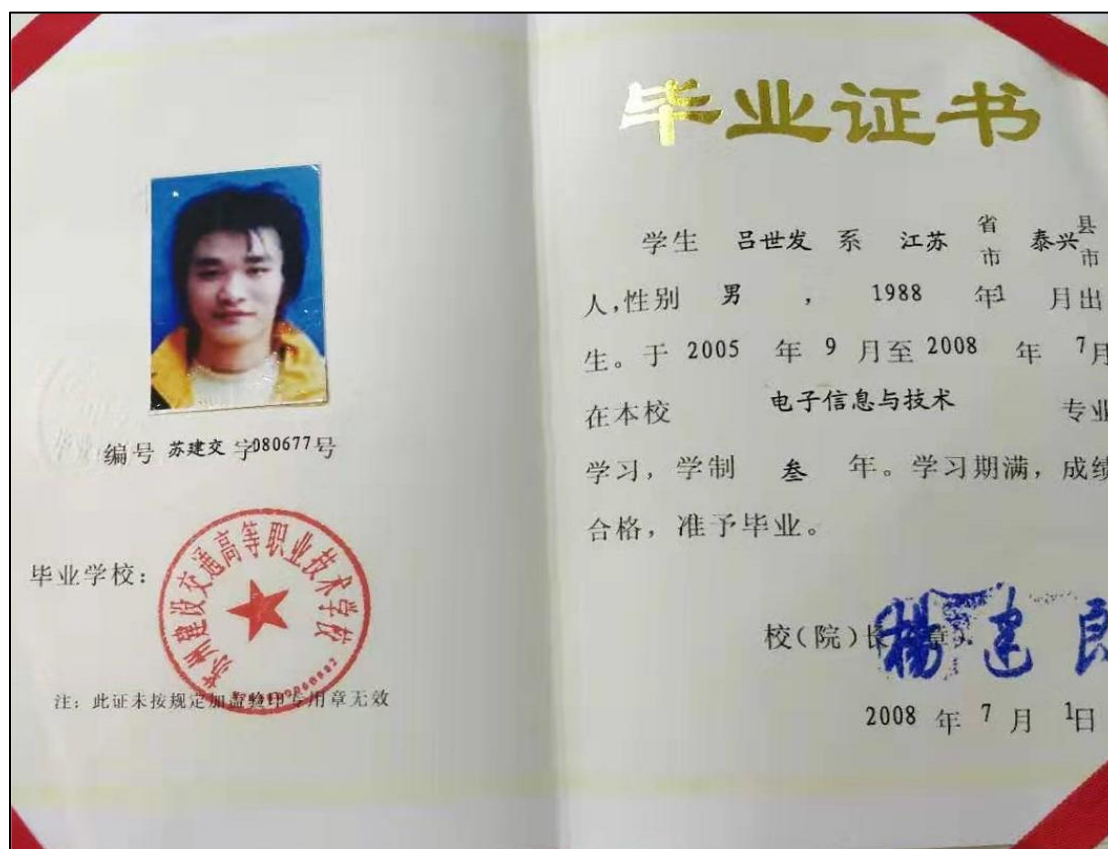 编号 苏建交 字080677号
毕业学校：
苏州建设交通高等职业技术学校
注：此证未按规定加盖验印专用章无效
毕业证书
学生 吕世发 系 江苏 省市 泰兴 县市
人,性别 男 , 1988 年1 月出
生。于 2005 年 9 月至 2008 年 7月
在本校 电子信息与技术 专业
学习，学制 叁 年。学习期满，成绩
合格，准予毕业。
校（院）长 章） 杨建良
2008 年 7 月 1日